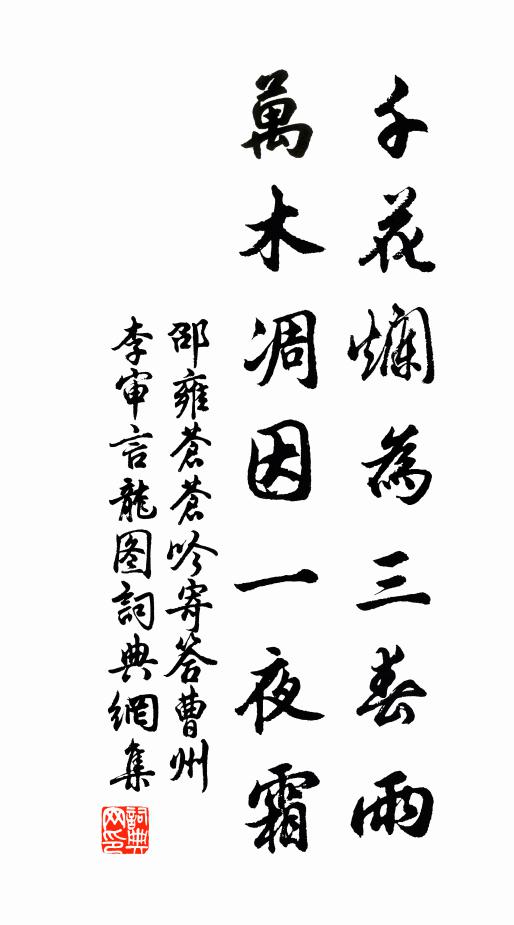 千花爛為三春雨
萬木凋因一夜霜
邵雍蒼蒼吟寄答曹州
李审言龍图詞典網集
詞典
网印